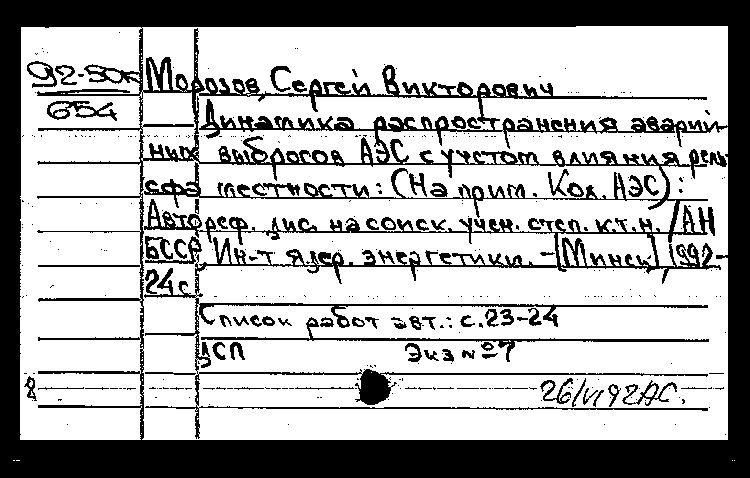 92-50к
654
Морозов, Сергей Викторович
Динамика распространения аварий-
ных выбросов АЭС с учетом влияния рель-
ефа местности: (На прим. Кол. АЭС):
Автореф. дис. на соиск. учен. степ. к.т.н. /АН
БССР, Ин-т ядер. энергетики. -[Минск], 1992-
24 с.
Список работ авт.: с.23-24
ДСП Экз №7
8 26/VI 92 АС.